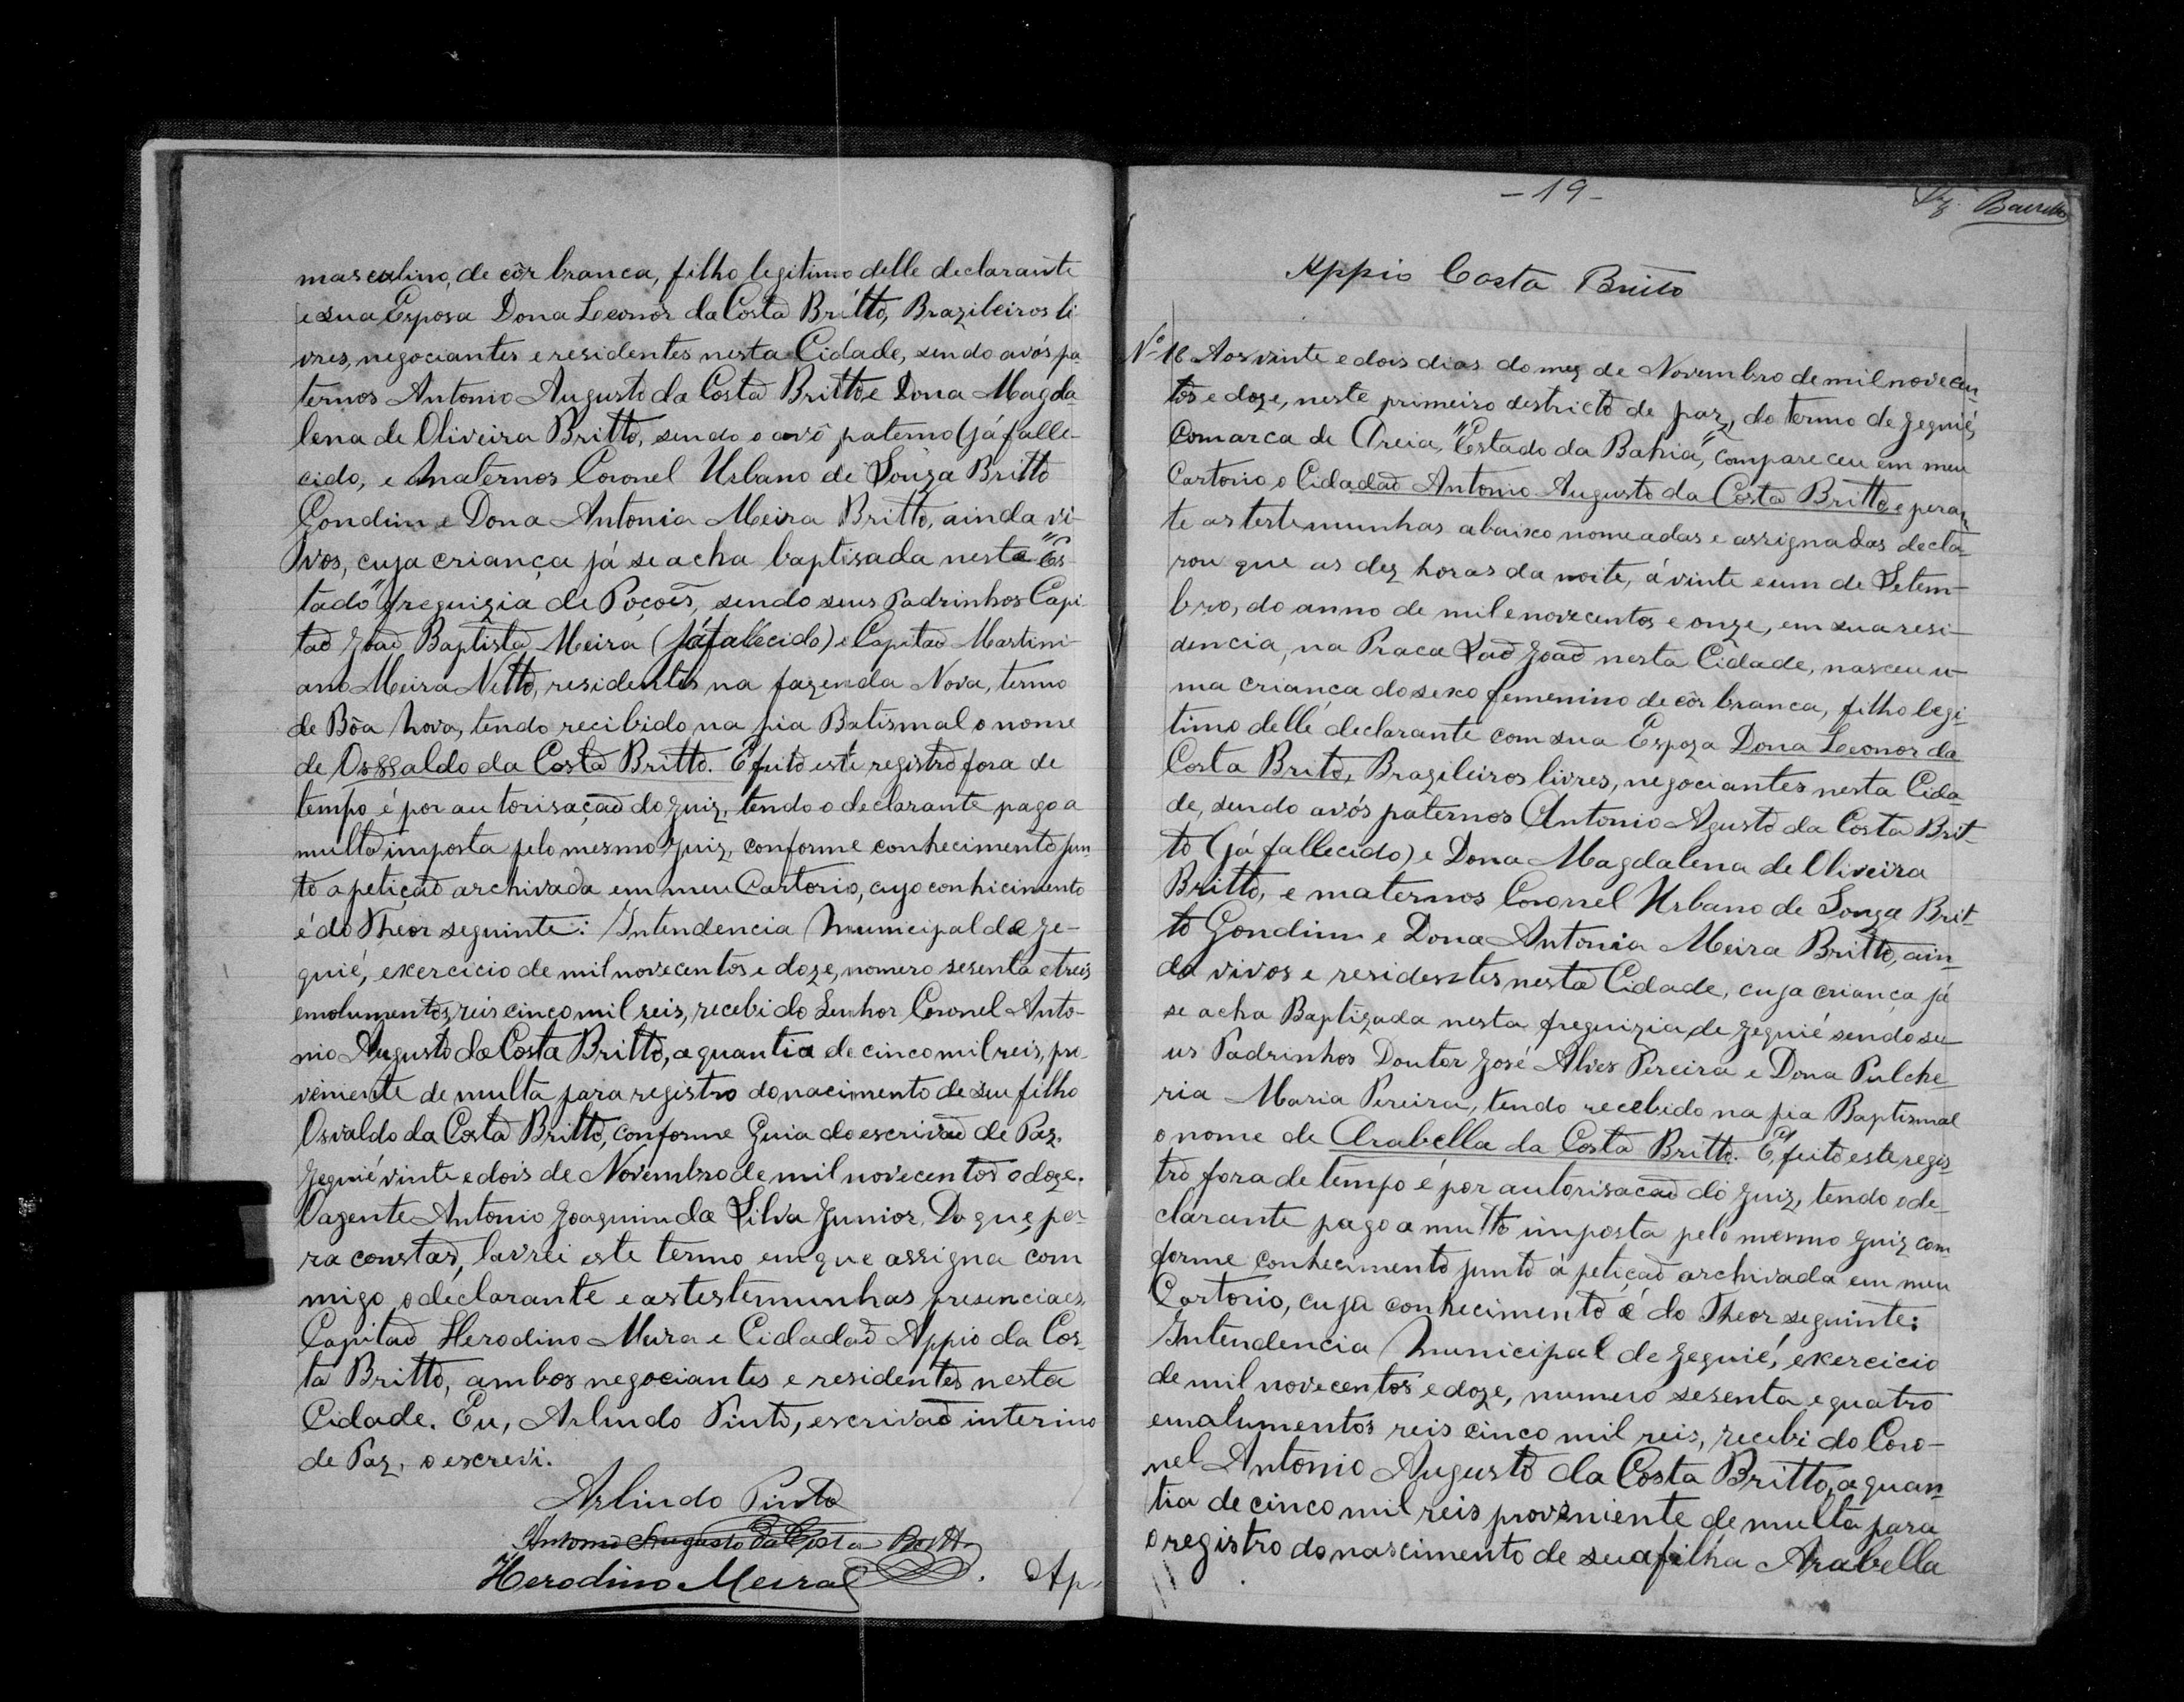 masculino, de côr branca, filho legitimo delle declarante
e sua Esposa Dona Leonor da Costa Britto, Brazileiros li
vres, negociantes e residentes nesta Cidade, sendo avós pa
ternos Antonio Augusto da Costa Britto e Dona Magda
lena de Oliveira Britto, sendo o avô paterno (já falle-
cido, e Maternos Coronel Urbano de Souza Britto
Gondim e Dona Antonia Meira Britto, ainda vi-
vos, cuja criança já se acha baptisada nesta "Es-
tado" freguizia de Poçoes, sendo seus Padrinhos Capi
tão João Baptista Meira (já fallecido) e Capitão Martini-
ano Meira Netto, residentes na fazenda Nova, termo
de Bôa Nova, tendo recibido na pia Batismal o nome
de Ossvaldo da Costa Britto. E feito este registro fora de
tempo é por autorisação do Juiz, tendo o declarante pago a
multa imposta pelo mesmo Juiz, conforme conhecimento jun-
to a petição archivada em meu Cartorio, cujo conhicimento
é do Theor seguinte: Intendencia Municipal de Je-
quié, exercicio de mil novecentos e doze, nomero sesenta e treis
emolumentos, reis cinco mil reis, recebi do Senhor Coronel Anto-
nio Augusto da Costa Britto, a quantia de cinco mil reis, pro-
veniente de multa para registro do nacimento de seu filho
Osvaldo da Costa Britto, conforme Guia do escrivão de Paz.
Jequié vinte e dois de Novembro de mil novecentos e doze.
O agente Antonio Joaquim da Silva Junior. Do que pa-
ra constar, lavrei este termo em que assigna com
migo o declarante e as testemunhas presenciaes,
Capitão Herodino Meira e Cidadão Appio da Cos-
ta Britto, ambos negociantes e residentes nesta
Cidade. Eu, Arlindo Pinto, escrivão interino
de Paz, o escrevi.
Arlindo Pinto
Antonio Augusto da Costa Britto
Herodino Meira
Ap-
- 19 -
Appio Costa Britto
Nº 18 Aos vinte e dois dias do mez de Novembro de mil novecen-
tos e doze, neste primeiro destricto de paz, do termo de Jequié,
Comarca de Areia, "Estado da Bahia", compareceu em meu
Cartorio o Cidadão Antonio Augusto da Costa Britto e peran-
te as testemunhas abaixo nomeadas e assignadas decla-
rou que as dez horas da noite, á vinte e um de Setem-
bro, do anno de mil e novecentos e onze, em sua resi-
dencia, na Praca São João nesta Cidade, nasceu u-
ma criança do sexo femenino de côr branca, filho legi-
timo delle declarante com sua Espoza Dona Leonor da
Costa Brito, Brazileiros livres, negociantes nesta Cida-
de, sendo avós paternos Antonio Agusto da Costa Brit-
to (já fallecido) e Dona Magdalena de Oliveira
Britto, e maternos Coronel Urbano de Souza Brit-
to Gondim e Dona Antonia Meira Britto, ain-
da vivos e residentes nesta Cidade, cuja criança já
se acha Baptizada nesta freguizia de Jequié sendo se-
us Padrinhos Doutor José Alves Pereira e Dona Pulche-
ria Maria Pereira, tendo recebido na pia Baptismal
o nome de Arabella da Costa Britto. E, feito este regis-
tro fora de tempo é por autorisacão do Juiz, tendo o de-
clarante pago a multa imposta pelo mesmo Juiz con
forme conhecimento junto á petição archivada em meu
Cartorio, cuja conhecimento é do Theor seguinte:
Intendencia Municipal de Jequié, exercicio
de mil novecentos e doze, numero sesenta e quatro
emalumentos reis cinco mil reis, recebi do Coro-
nel Antonio Augusto da Costa Britto, a quan-
tia de cinco mil reis proveniente de multa para
o registro do nascimento de sua filha Arabella